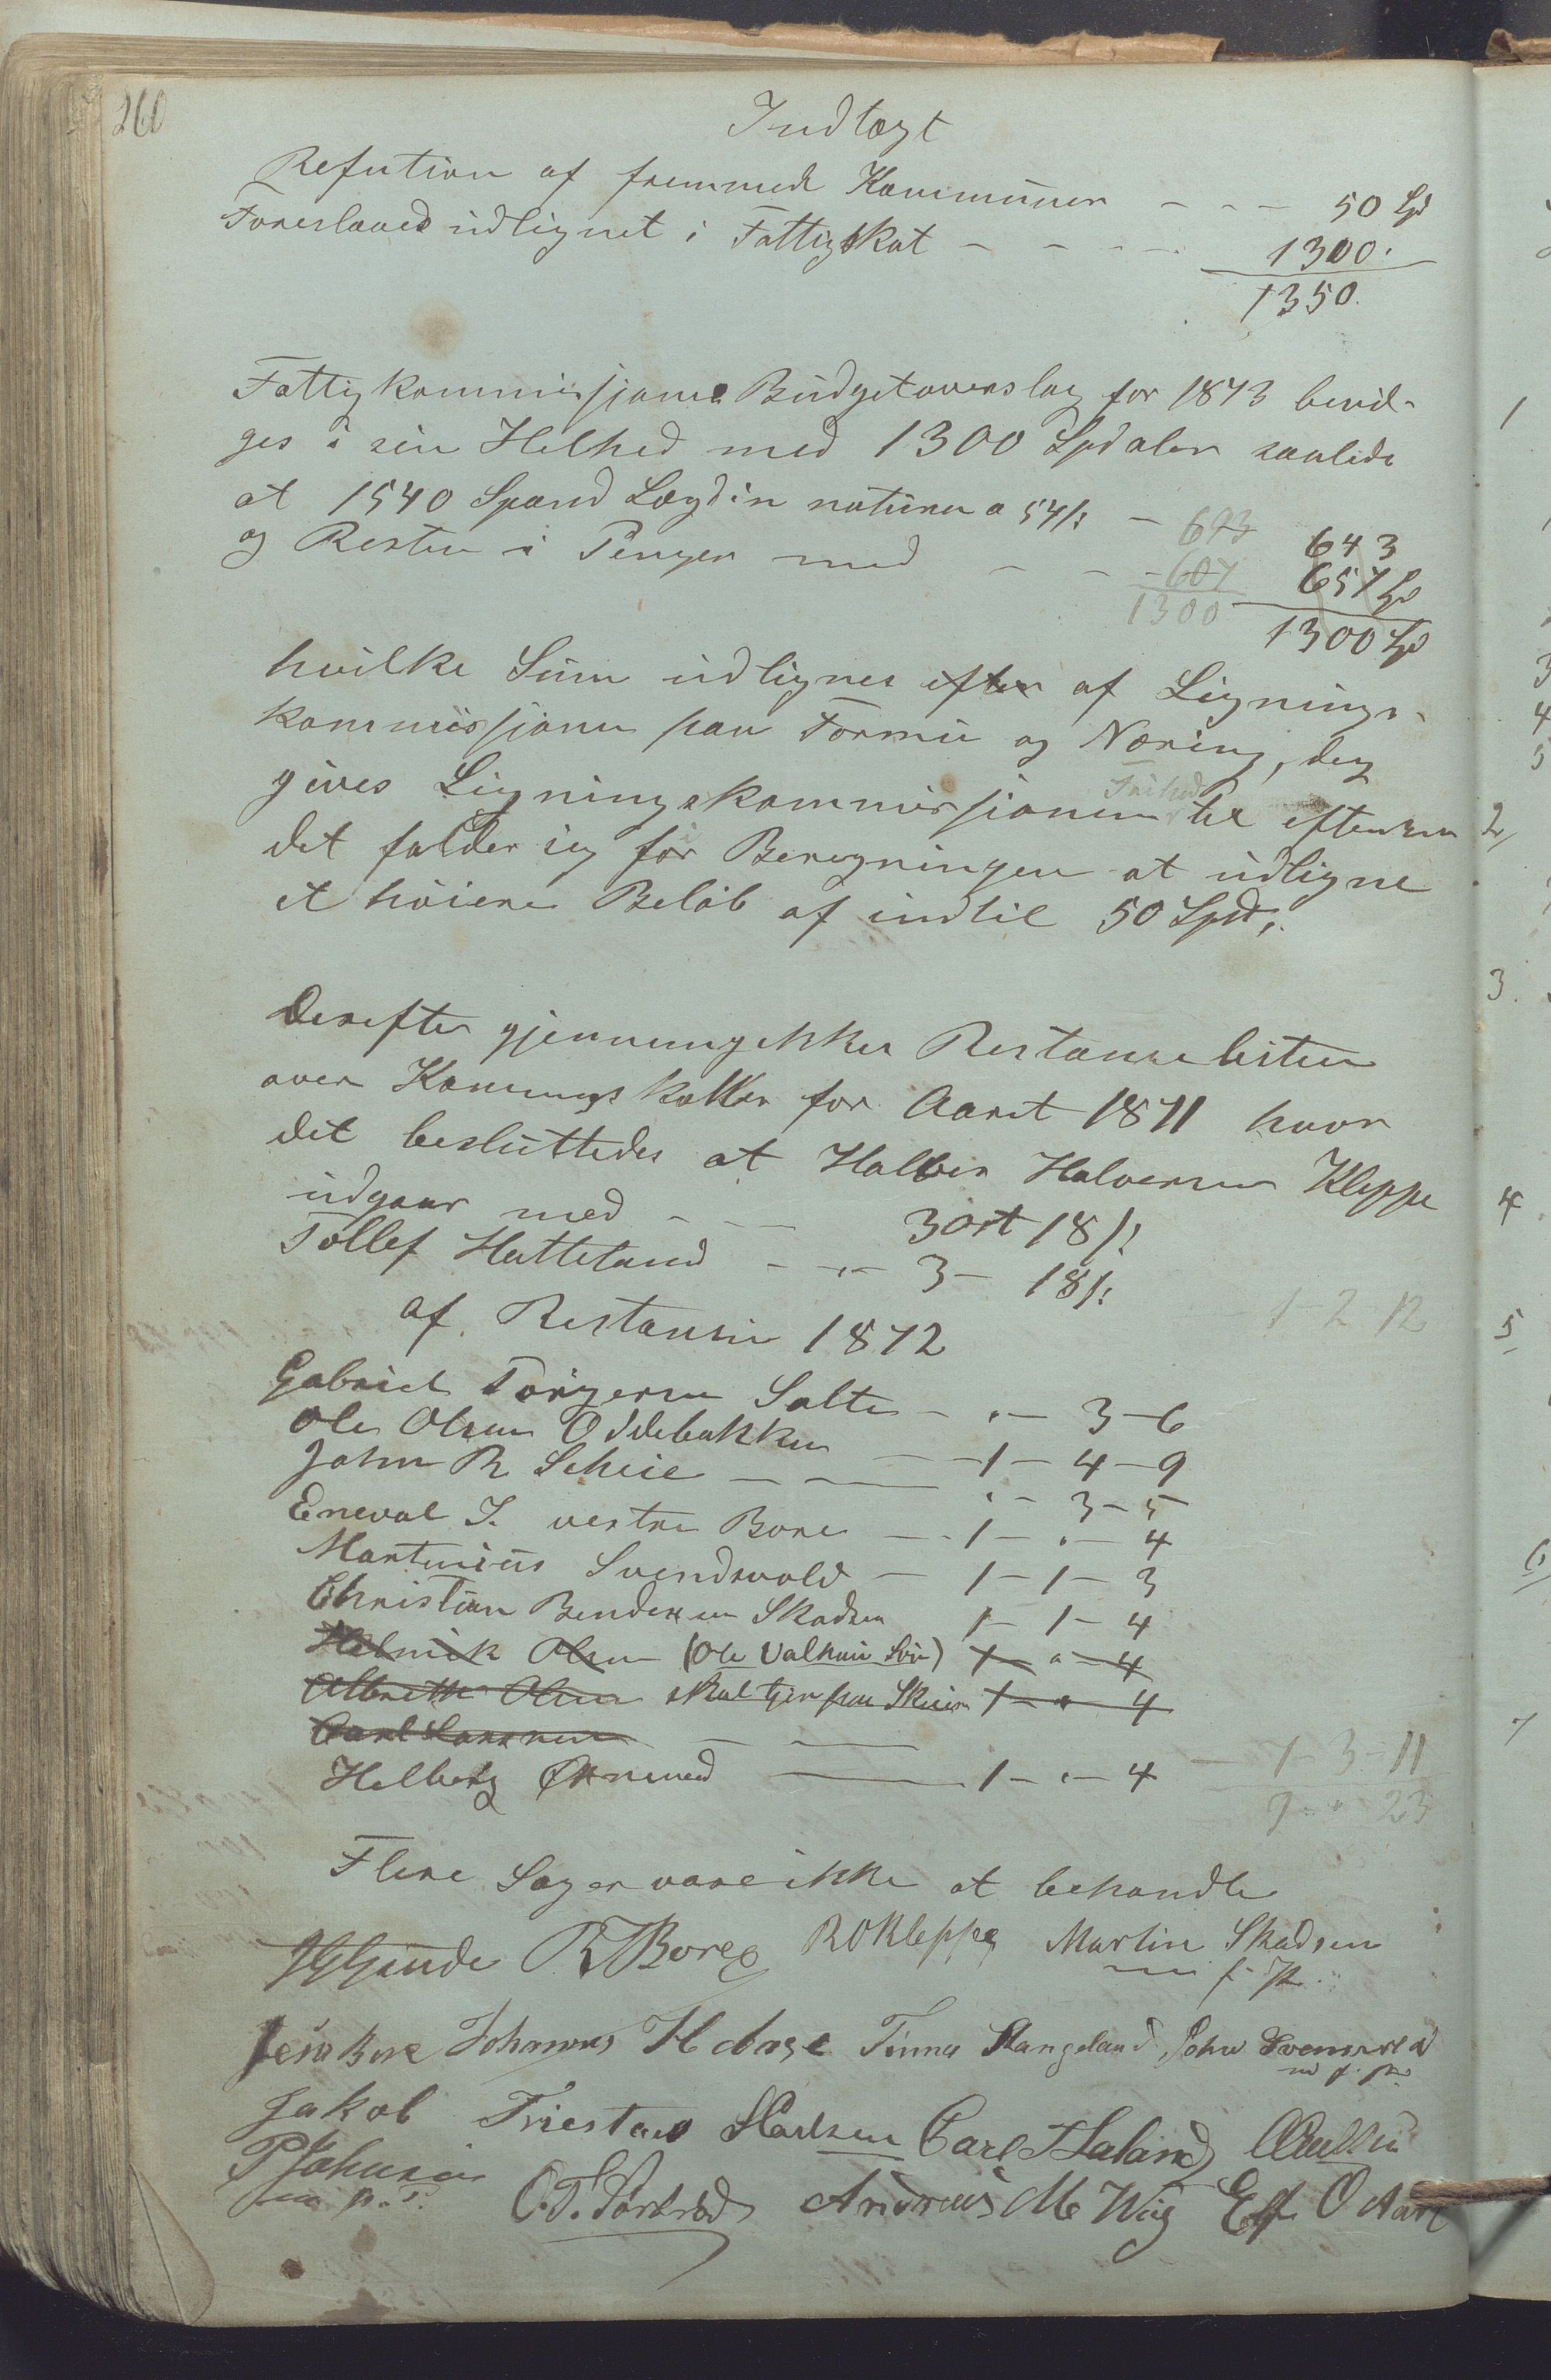 260
Indtægt
Refution af fremmede Kommuner - - - 50 Spd
Foreslaaes udlignet i Fattigskat - - - - 1300.
1350.
Fattigkommissjonens Budgetoverslag for 1873 bevil-
ges i sin Helhed med 1300 Spdaler saaledes
at 1540 Spand Lægd in natura a 54 ß - 693 643
og Resten i Penger med - - - 607 657 Spd
1300 1300 Spd
hvilke Sum udlignes efter af Lignings-
kommissjonen paa Formue og Næring, dog
gives Ligningskommissjonen Frihed til eftersom
det falder sig for Beregningen at udligne
et høiere Beløb af indtil 50 Spd.
Derefter gjennemgikkes Restanselisten
over Komuneskatten for Aaret 1871 hvor
det besluttedes at Halvor Halvorsen Kleppe
udgaar med - - - 3 Ort 18 ß
Tollef Hatteland - " - 3 - 18 ß
1 2 12
af Restansen 1872
Gabriel Torgersen Salte - " - 3 - 6
Ole Olsen Oddebakken - 1 - 4 - 9
John R Scheie - - " - 3 - 5
Eneval I. vestre Bore - 1 - " - 4
Martinius Svendsvold - 1 - 1 - 3
Christian Bendixsen Skadsem 1 - 1 - 4
Helmik Olsen (Ole Søn) 1 - " - 4
Albrette Olsen skal tjen paa 1 - " - 4
Carl Larsen -
Helberg - 1 - " - 4 - 1 - 3 - 11
" 23
Flere Sager vare ikke at behandle
R Bore R O Kleppe Martin Skadsem
m f P
Bore Johannes H Tønnes Stangeland John Svensvold
m f. P
Jakob Friestad Carl Haland
P Johnsen
m p. P.
Andreas M Wiig O
1
3
4
5
2
3.
4
5
6
7